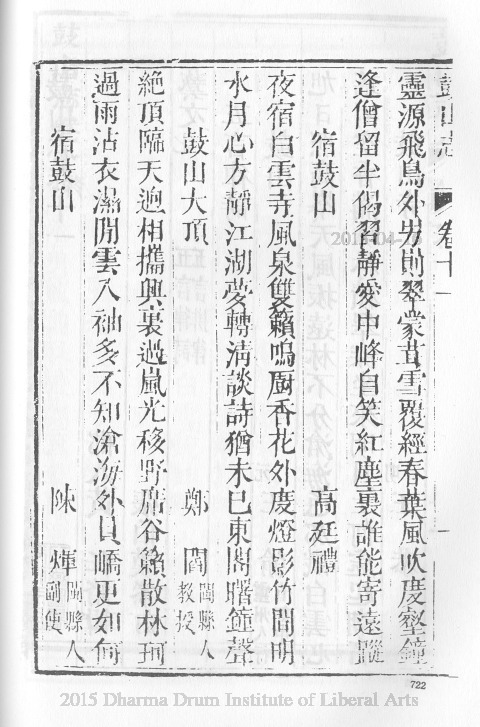 鼓山志 卷十一
靈源飛鳥外步前翠蒙茸雪覆經春葉風吹度壑鐘
逢僧留半偈習靜愛中峰自笑紅塵裏誰能寄遠蹤
宿鼓山 高廷禮
夜宿白雲寺風泉雙籟鳴厨香花外度燈影竹間明
水月心方靜江湖夢轉淸談詩猶未已東閣曙鐘聲
鼓山大頂 鄭 閻 閩縣人教授
絶頂臨天逈相攜興裏過嵐光移野席谷籟散林珂
過雨沾衣濕閒雲入袖多不知滄海外員嶠更如何
宿鼓山 陳 煇 閩縣人副使
722
2015 Dharma Drum Institute of Liberal Arts